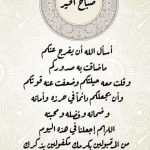 صباح الخير
أسأل الله أن يفرج عنكم
ماضاقت به صدوركم
وقلت معه حيلتكم وضعفت عنه قوتكم
وأن يجعلكم دائماً في حرزه وأمانه
وضمانه وفضله ومحبته
اللهم إجعلنا في هذه اليوم
من الآمنين بكرمك مكفولين بذكرك